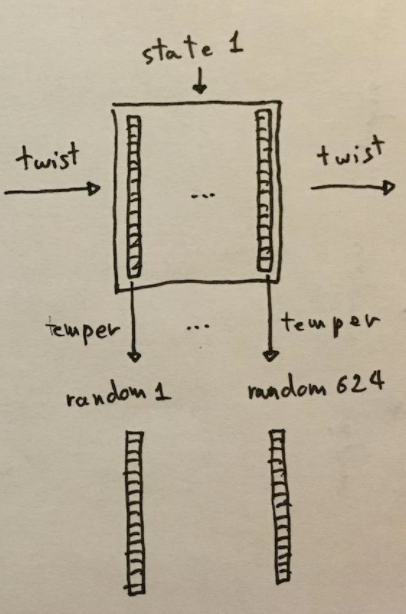 state 1
twist
twist
...
temper
...
temper
random 1
random 624